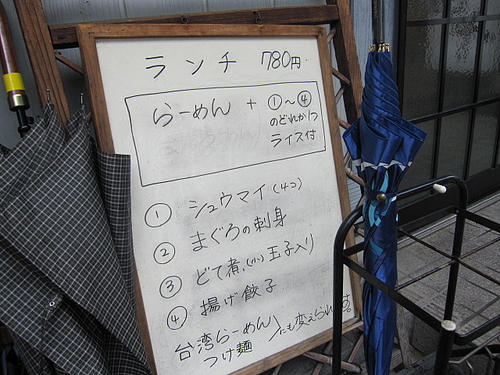 ランチ 780円
らーめん + ①〜④
のどれか1つ
ライス付
① シュウマイ(4コ)
② まぐろの刺身
③ どて煮(小)玉子入り
④ 揚げ餃子
台湾らーめん
つけ麺
にも変えられ